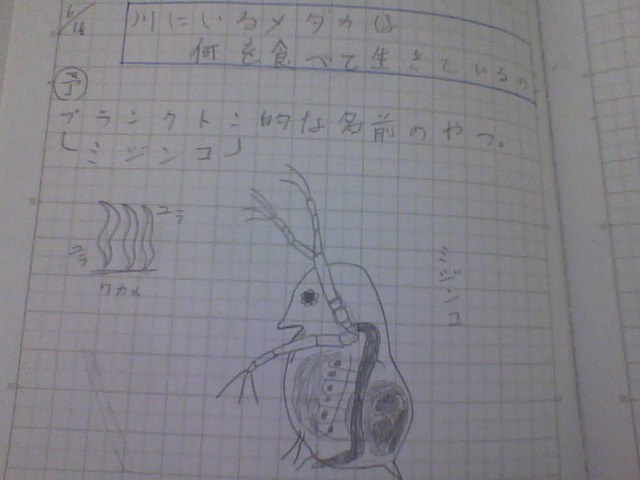 6/16
川にいるメダカは
何を食べて生きているの
プランクトン 名前のやつ。
(ミジンコ)
ユラ
ユラ
ワカメ
ミジンコ